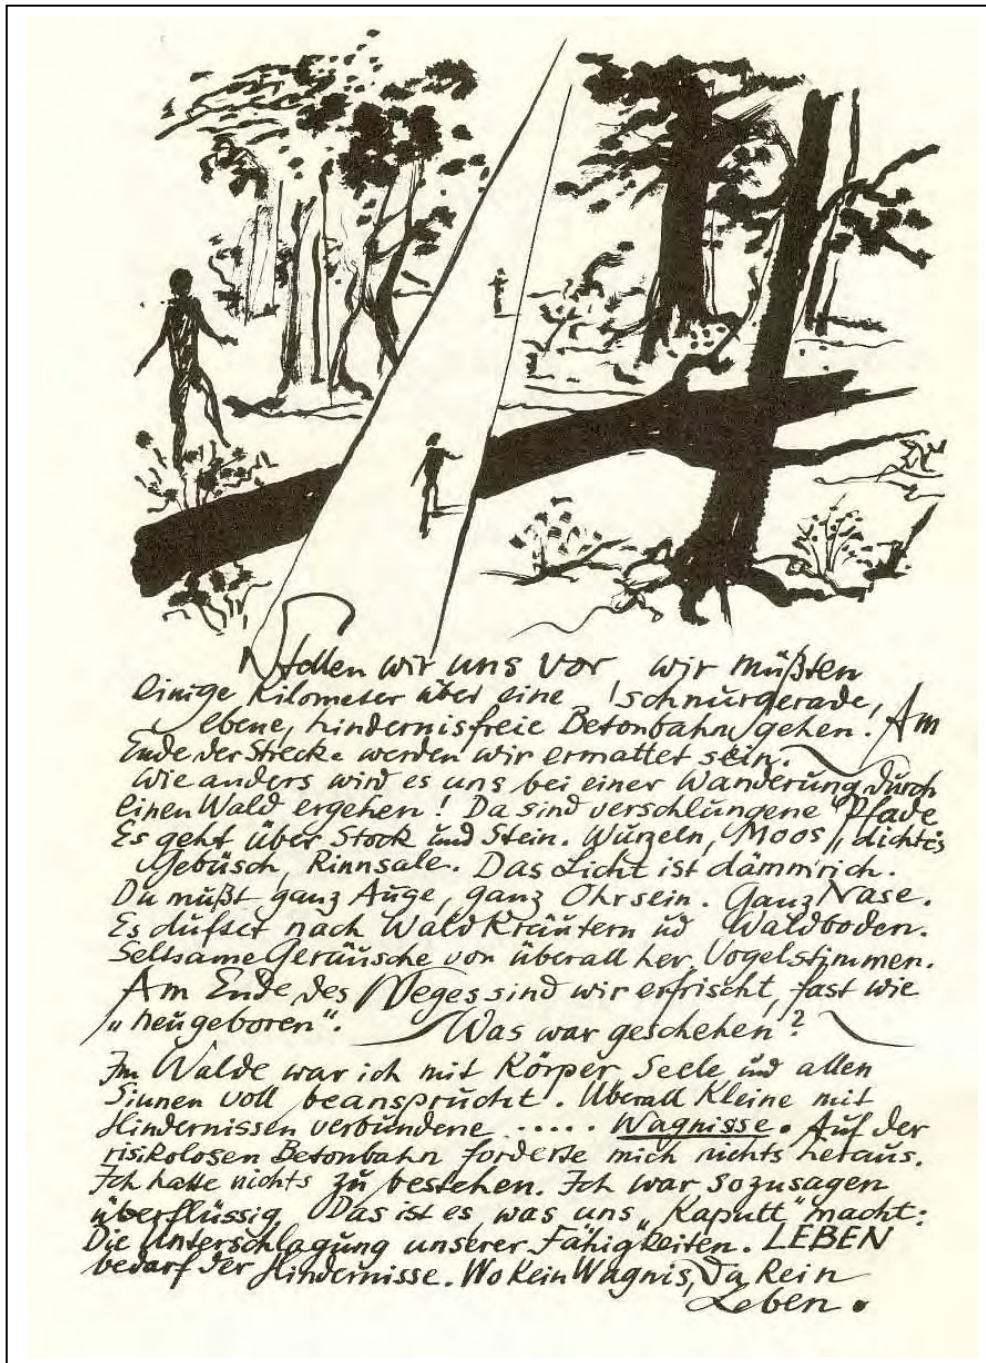 Stellen wir uns vor, wir müßten
einige Kilometer über eine schnurgerade,
ebene, hindernisfreie Betonbahn gehen. Am
Ende der Strecke werden wir ermattet sein.
Wie anders wird es uns bei einer Wanderung durch
einen Wald ergehen! Da sind verschlungene Pfade
Es geht über Stock und Stein. Wurzeln, Moos, dichtes
Gebüsch, Rinnsale. Das Licht ist dämmrich.
Du mußt ganz Auge, ganz Ohr sein. Ganz Nase.
Es duftet nach Waldkräutern ud Waldboden.
Seltsame Geräusche von überall her, Vogelstimmen.
Am Ende des Weges sind wir erfrischt, fast wie
„neugeboren“. Was war geschehen?
Im Walde war ich mit Körper, Seele und allen
Sinnen voll beansprucht. Überall kleine mit
Hindernissen verbundene ..... Wagnisse. Auf der
risikolosen Betonbahn forderte mich nichts heraus.
Ich hatte nichts zu bestehen. Ich war sozusagen
überflüssig. Das ist es, was uns „kaputt“ macht:
Die Unterschlagung unserer Fähigkeiten. LEBEN
bedarf der Hindernisse. Wo kein Wagnis, da kein
Leben.